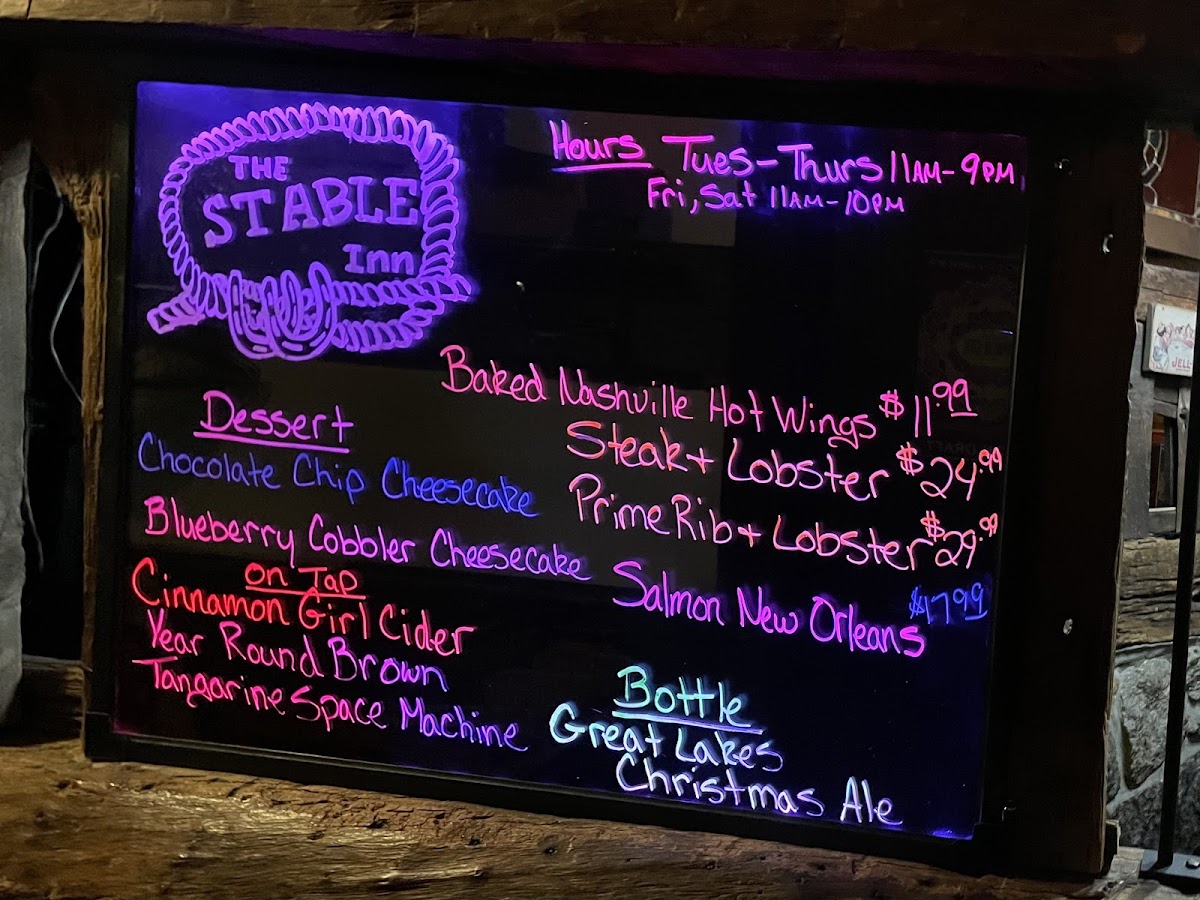 THE
STABLE
Inn
Hours Tues-Thurs 11AM-9PM
Fri, Sat 11AM-10PM
Baked Nashville Hot Wings $11.99
Steak + Lobster $24.99
Prime Rib + Lobster $29.99
Salmon New Orleans $17.99
Dessert
Chocolate Chip Cheesecake
Blueberry Cobbler Cheesecake
On Tap
Cinnamon Girl Cider
Year Round Brown
Tangarine Space Machine
Bottle
Great Lakes
Christmas Ale